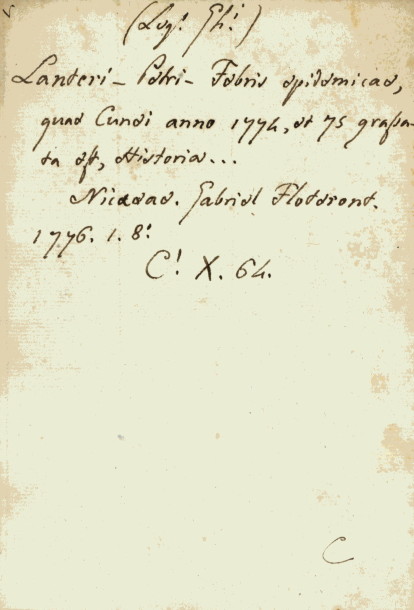 (Leg: Gh:)
Lanteri - Petri - Febris epidemicae,
quae Cunei anno 1774, et 75 grassa-
ta est, Historia...
Niceae. Gabriel Floteront.
1776. 1. 8:
C! X. 64.
C